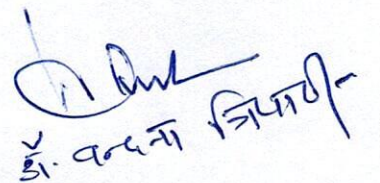 डॉ. वन्दना त्रिपाठी